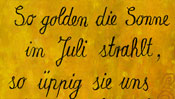 So golden die Sonne
im Juli strahlt,
so üppig sie uns